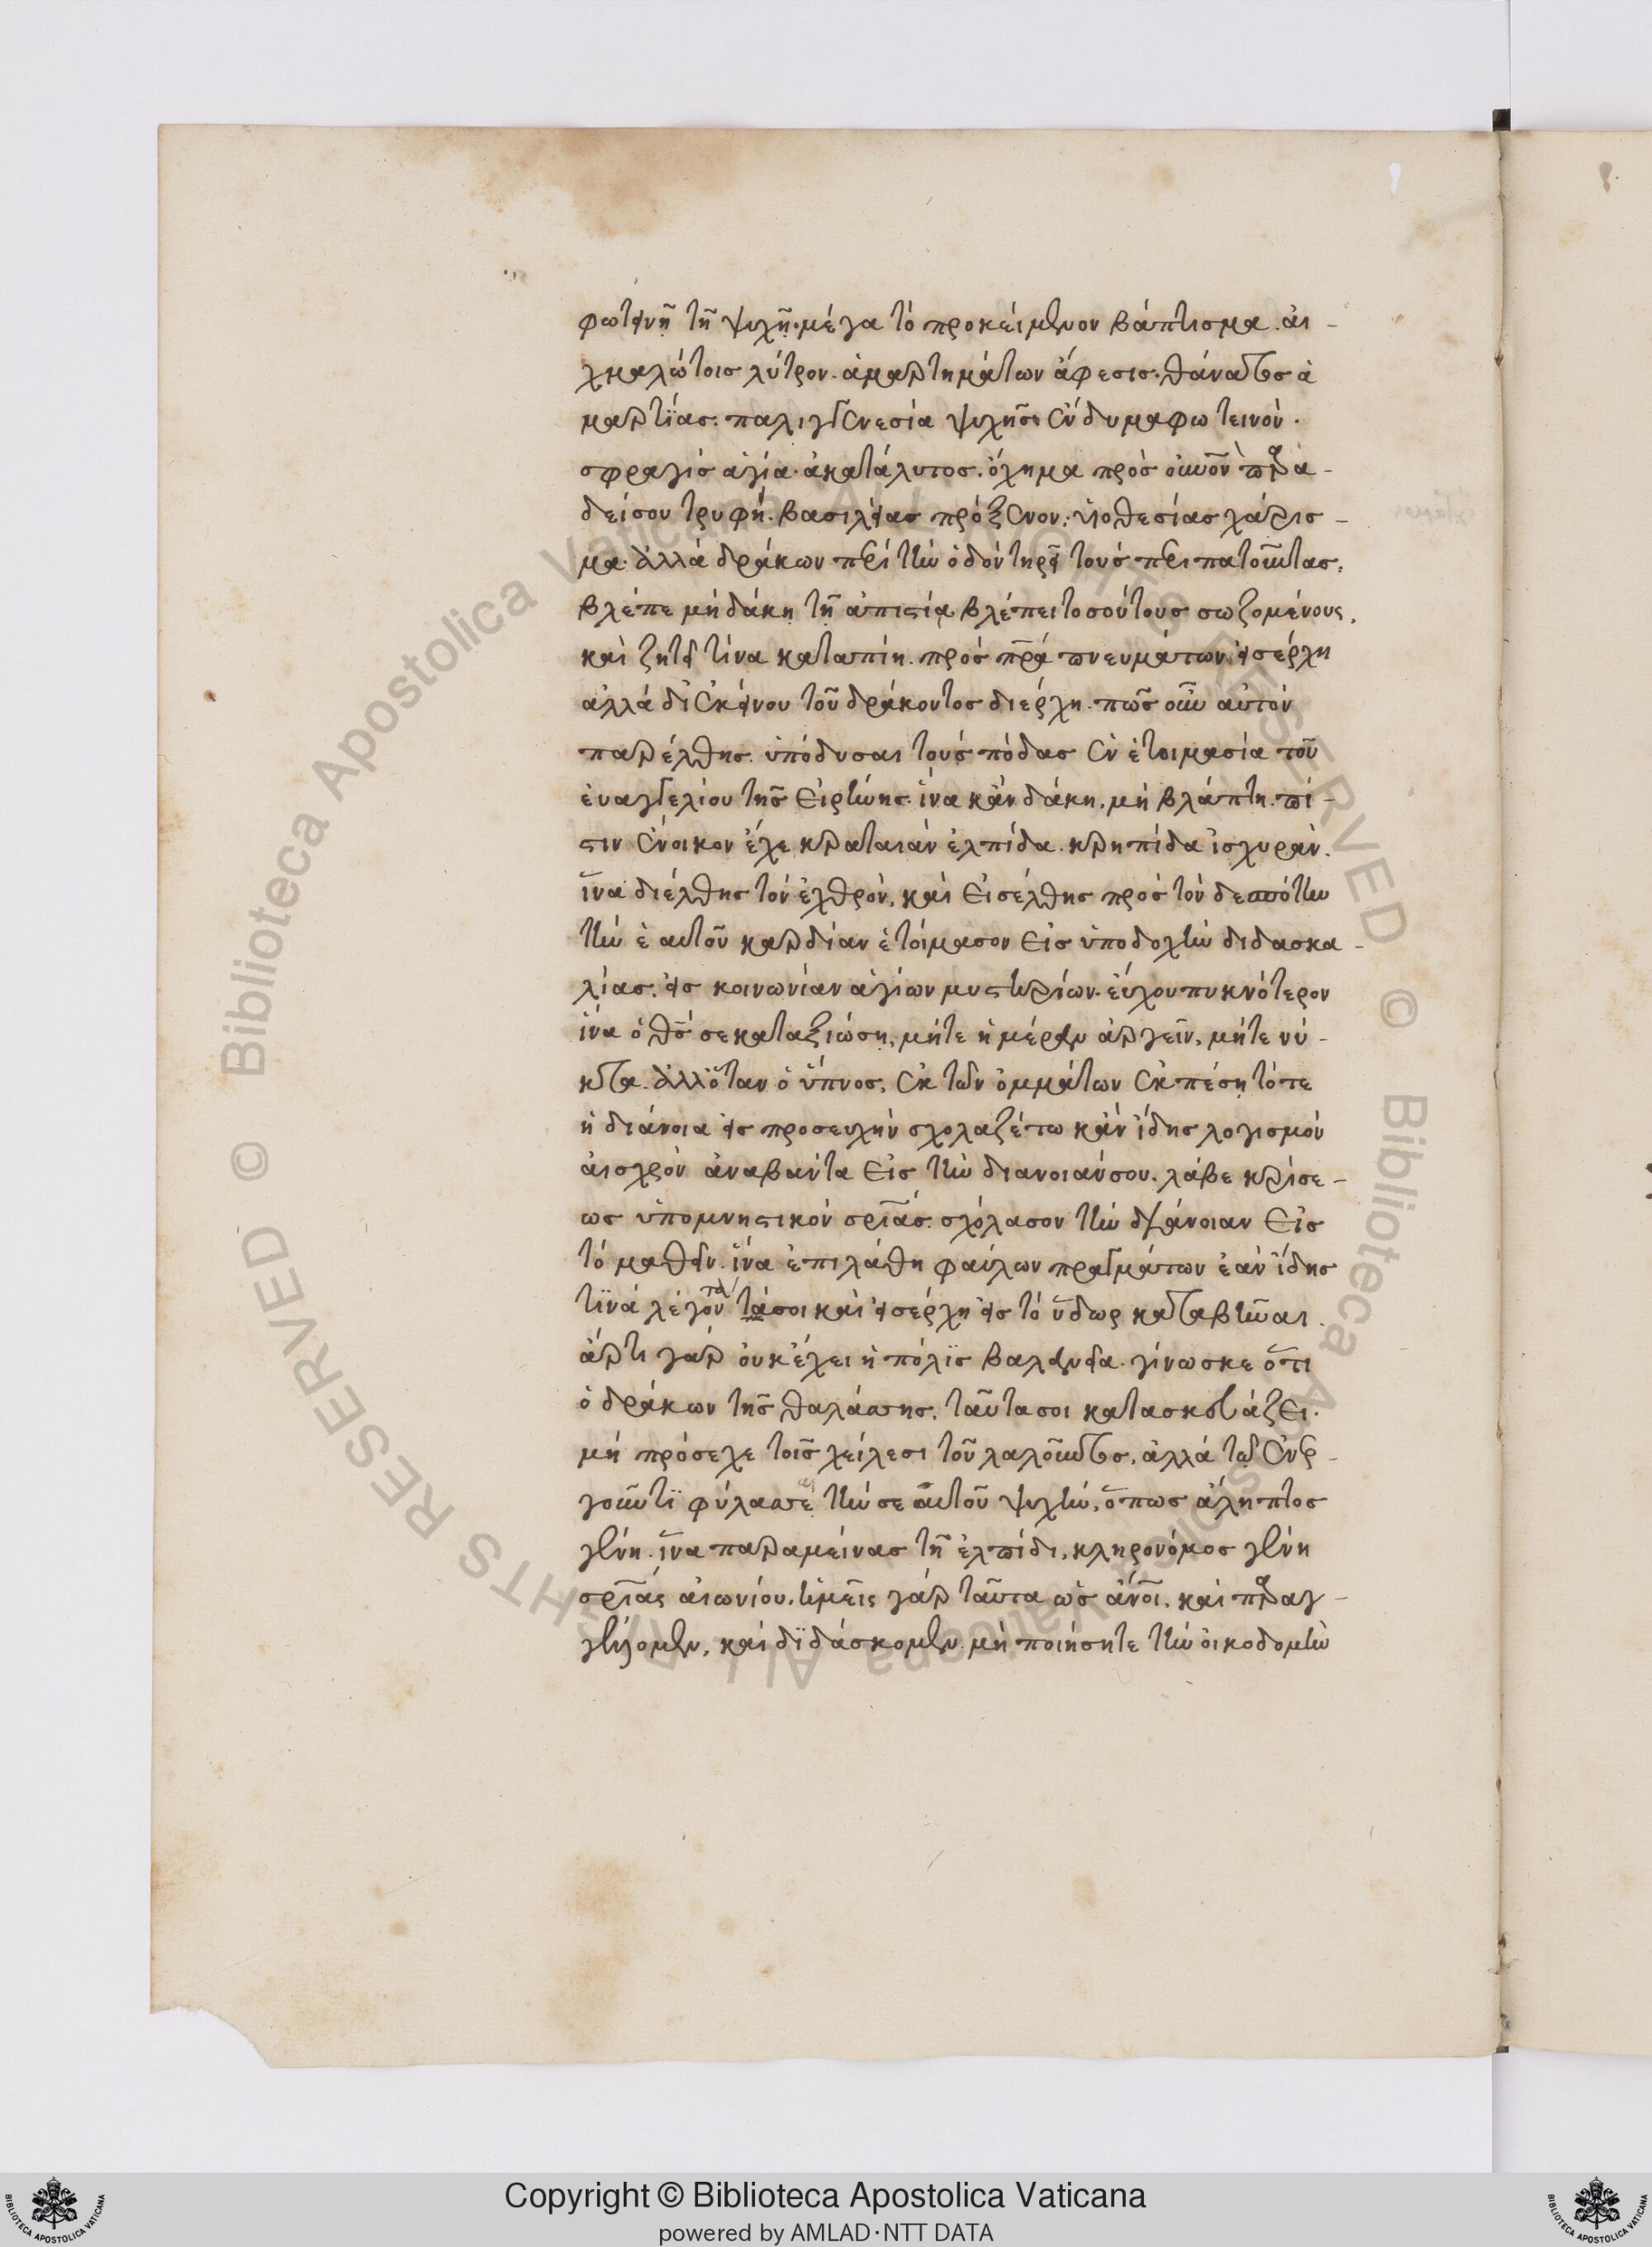 φωτεινῆ τῆ ψυχῆ. μέγα τὸ προκείμενον βάπτισμα. αἰ-
χμαλώτοις λύτρον. ἁμαρτημάτων ἄφεσις. θάνατος ἁ
μαρτίας. παλιγγενεσία ψυχῆς. ἔνδυμα φωτεινὸν.
σφραγὶς ἁγία. ἀκατάλυτος. ὄχημα πρὸς οὐνὸν. παρα-
δείσου τρυφή. βασιλείας πρόξενον. υἱοθεσίας χάρισ-
μα. ἀλλὰ δράκων περὶ τὴν ὁδὸν τηρεῖ τοὺς περιπατοῦντας.
βλέπε μὴ δάκη τῆ ἀπιστία. βλέπει τοσούτους σωζομένους,
καὶ ζητεῖ τίνα καταπίη. πρὸς πρα πνευμάτων εἰσέρχη
ἀλλὰ δι ἐκείνου τοῦ δράκοντος διέρχη. πῶς οὖν αὐτὸν
παρέλθης. ὑπόδυσαι τοὺς πόδας ἐν ἑτοιμασία τοῦ
ἐυαγγελίου τῆς εἰρήνης. ἵνα κἂν δάκη, μὴ βλάπτη. πί-
στιν ἔνοικον ἔχε κραταιὰν ἐλπίδα. κρηπίδα ἰσχυρὰν.
ἵνα διέλθης τὸν ἐχθρὸν, καὶ εἰσέλθης πρὸς τὸν δεσπότην
τὴν ἑαυτοῦ καρδίαν ἑτοίμασον εἰς ὑποδοχὴν διδασκα-
λίας. εἰς κοινωνίαν ἁγίων μυστηρίων. εὔχου πυκνότερον
ἵνα ὁ θς σε καταξιώση, μήτε ἡμέραν ἀργεῖν, μήτε νύ-
κτα. ἀλλ ὅταν ὁ ὕπνος, ἐκ τῶν ὀμμάτων ἐκπέση τότε
ἡ διάνοια εἰς προσευχὴν σχολαζέτω κἂν ἴδης λογισμὸν
αἰσχρὸν ἀναβάντα εἰς τὴν διανοιάν σου. λάβε κρίσε-
ως ὑπομνηστικὸν σριας. σχόλασον τὴν διάνοιαν εἰς
τὸ μαθεῖν. ἵνα ἐπιλάθη φαύλων πραγμάτων ἐὰν ἴδης
τϊνὰ λέγοντα τά σοι καὶ εἰσέρχη εἰς τὸ ὕδωρ καταβῆναι.
ἄρτι γὰρ οὐκ ἔχει ἡ πόλϊς βαλανεῖα. γίνωσκε ὅτι
ὁ δράκων τῆς θαλάσσης, ταῦτα σοι κατασκευάζει.
μὴ πρόσεχε τοῖς χείλεσι τοῦ λαλοῦντος, ἀλλὰ τῶ ἐνερ-
γοῦντϊ φύλασσε τὴν σεαυτοῦ ψυχὴν, ὅπως ἄληπτος
γένη. ἵνα παραμείνας τῆ ἐλπίδι, κληρονόμος γένη
σριας αἰωνίου. ἡμεῖς γὰρ ταῦτα ὡς ἄνοι, καὶ παραγ-
γέλλομεν, καὶ δϊδάσκομεν. μὴ ποιήσητε τὴν οἰκοδομὴν
Copyright © Biblioteca Apostolica Vaticana
powered by AMLAD·NTT DATA